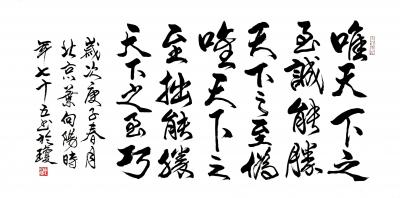 唯天下之
至誠能勝
天下之至偽
唯天下之
至拙能勝
天下之至巧
歲次庚子春月
北京葉向陽時
年七十五書於瓊